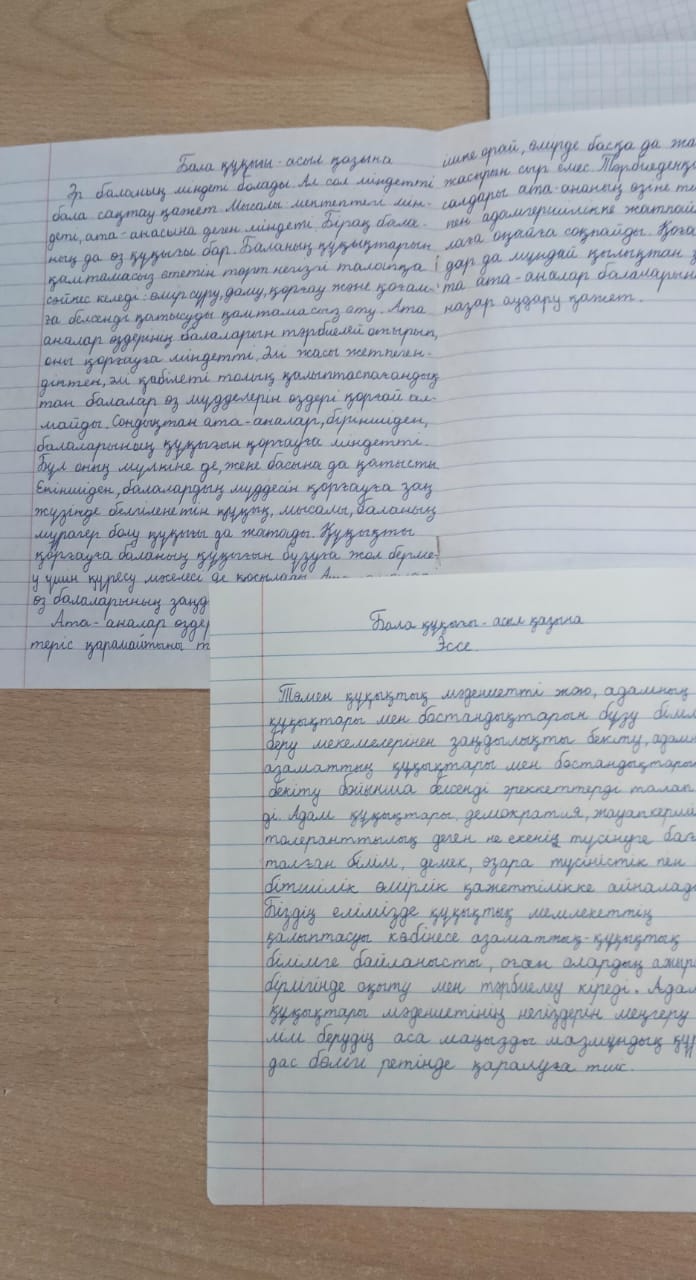 Бала құқығы - асыл қазына
Әр баланың міндеті болады. Ал сол міндетті
бала сақтау қажет. Мысалы: мектептегі мін-
деті, ата-анасына деген міндеті. Бірақ бала-
ның да өз құқығы бар. Баланың құқықтарын
қамтамасыз ететін төрт негізгі талапқа
сәйкес келеді: өмір сүру, даму, қорғау және қоғам-
ға белсенді қатысуды қамтамасыз ету. Ата
аналар өздерінің балаларын тәрбиелей отырып,
оны қорғауға міндетті. Әлі жасы жетпеген-
діктен, әлі қабілеті толық қалыптаспағандық
тан балалар өз мүдделерін өздері қорғай ал-
майды. Сондықтан ата-аналар, біріншіден,
балаларының құқығын қорғауға міндетті.
Бұл оның мүлкіне де, жеке басына да қатысты
Екіншіден, балалардың мүддесін қорғауға заң
жүзінде белгіленетін құқық, мысалы, баланың
мұрагер болу құқығы да жатады. Құқықты
қорғауға баланың құқығын бұзуға жол берме-
у үшін күресу мәселесі де қосылады.
өз балаларының
Ата-аналар
теріс қарамайтыны
ішке орай, өмірде басқа да
жасырын сыр емес.
ата-ананың өзіне
пен адамгершілікке жатпай
лаға оңайға соқпайды.
дар да мұндай қылықтан
та ата-аналар балаларын
назар аудару қажет.
Бала құқығы - асыл қазына
Эссе
Төмен құқықтық мәдениетті жою, адамның
құқықтары мен бостандықтарын бұзу білім
беру мекемелерінен заңдылықты бекіту,
азаматтың құқықтары мен бостандықтары
бекіту бойынша белсенді әрекеттерді талап
ді. Адам құқықтары, демократия,
толеранттылық деген не екенін түсінуге
талған білім, демек, өзара түсіністік пен
бітімшілік өмірлік қажеттілікке
Біздің елімізде құқықтық мемлекеттің
қалыптасуы көбінесе азаматтық-құқықтық
білімге байланысты, оған олардың
бірлігінде оқыту мен тәрбиелеу кіреді.
құқықтары мәдениетінің негіздерін меңгеру
лім берудің аса маңызды мазмұндық
дас бөлігі ретінде қаралуға тиіс.